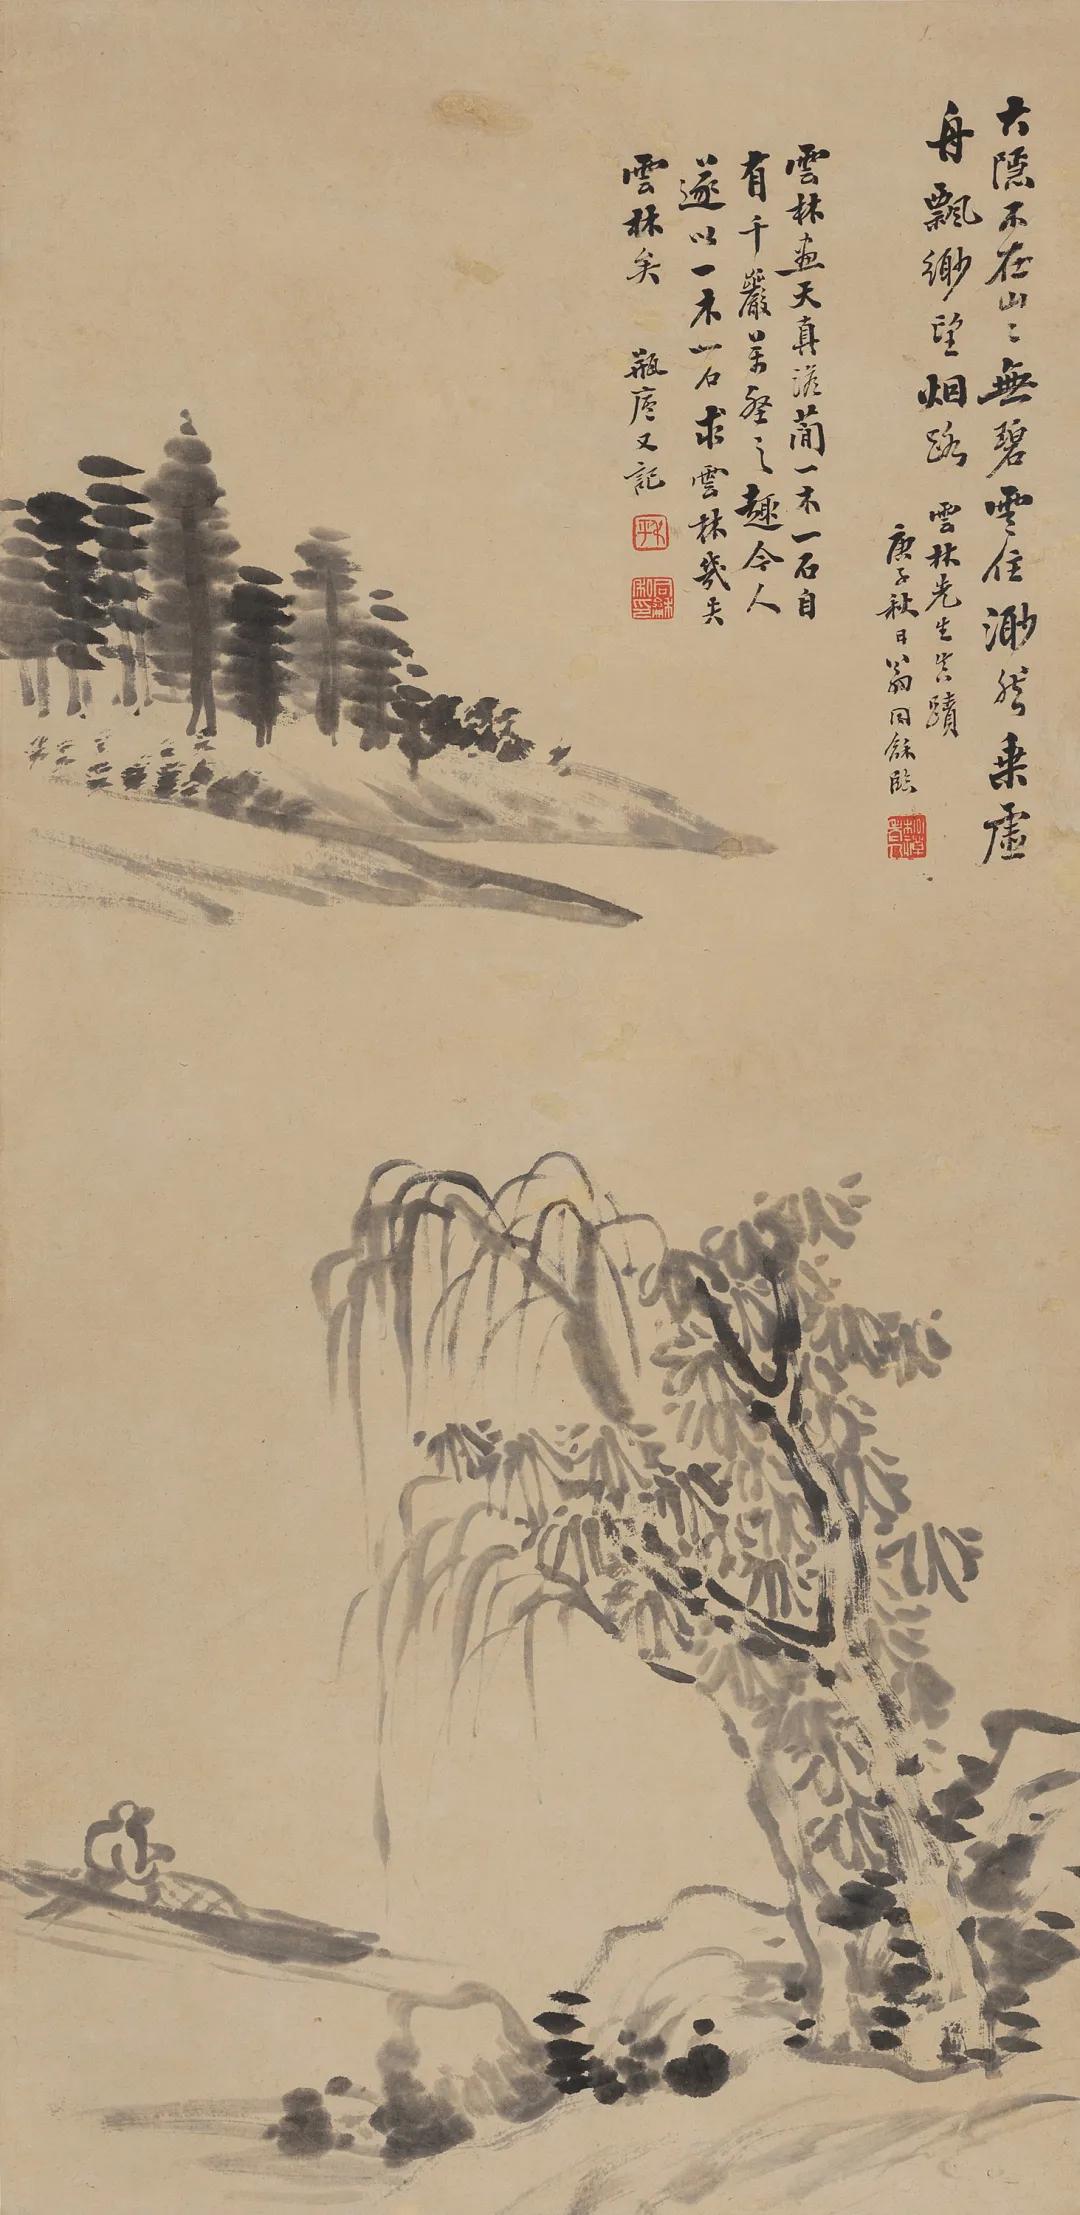 大隱不在山〻無碧雲住渺然乘虛
舟飄緲望烟路
雲林先生真蹟
庚子秋日翁同龢臨
雲林畫天真澹蕳一木一石自
有千巖萬壑之趣今人
遂以一木一石求雲林幾失
雲林矣
瓶廬又記
同龢印